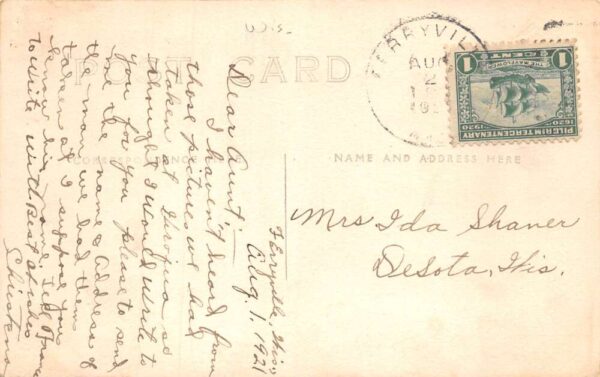 Wis.
POST CARD
CORRESPONDENCE
NAME AND ADDRESS HERE
FERRYVIL
AUG
2
192
1 CENT 1
THE MAYFLOWER
PILGRIM TERCENTENARY
1620 1920
Mrs Ida Shaner
DeSota, Wis.
Ferryville, Wis.
Aug. 1, 1921
Dear Aunt:
I haven't heard from
those pictures we had
taken at so
thought I would write to
you for you please to send
me the name & Address of
the man we had them
taken at I suppose you
know his name. Tell
to write with Best wishes